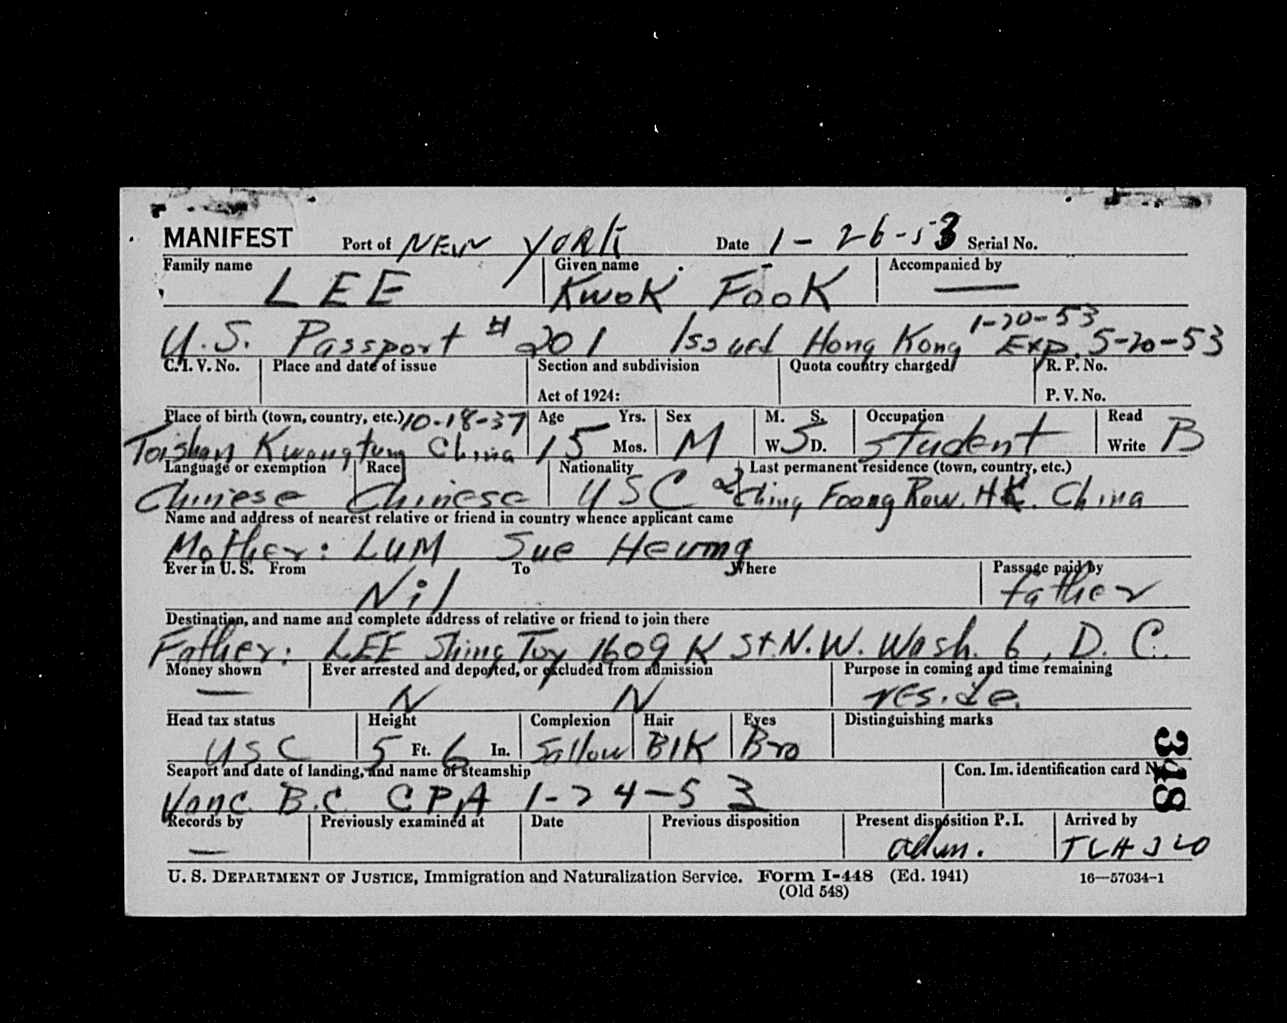 MANIFEST Port of NEW YORK Date 1-26-53 Serial No.
Family name LEE Given name Kwok Fook Accompanied by —
U.S. Passport # 201 Issued Hong Kong 1-20-53 Exp. 5-20-53
C. I. V. No. Place and date of issue Section and subdivision Quota country charged R. P. No.
Act of 1924: P. V. No.
Place of birth (town, country, etc.) 10-18-37 Age Yrs. Sex M. S. Occupation Read
Toishan Kwangtung China 15 Mos. M W. S D. student Write B
Language or exemption Race Nationality Last permanent residence (town, country, etc.)
Chinese Chinese USC 2 Ching Foong Row, H.K. China
Name and address of nearest relative or friend in country whence applicant came
Mother: LUM Sue Heung
Ever in U. S. From To Where Passage paid by
Nil father
Destination, and name and complete address of relative or friend to join there
Father: LEE Shing Toy 1609 K St. N.W. Wash. 6, D. C.
Money shown Ever arrested and deported, or excluded from admission Purpose in coming and time remaining
— N N reside
Head tax status Height Complexion Hair Eyes Distinguishing marks
USC 5 Ft. 6 In. Sallow Blk Bro
Seaport and date of landing, and name of steamship Con. Im. identification card No.
Vanc. B.C. CPA 1-24-53
348
Records by Previously examined at Date Previous disposition Present disposition P. I. Arrived by
— adm.
U. S. DEPARTMENT OF JUSTICE, Immigration and Naturalization Service. Form I-448 (Ed. 1941) 16—57034-1
(Old 548)